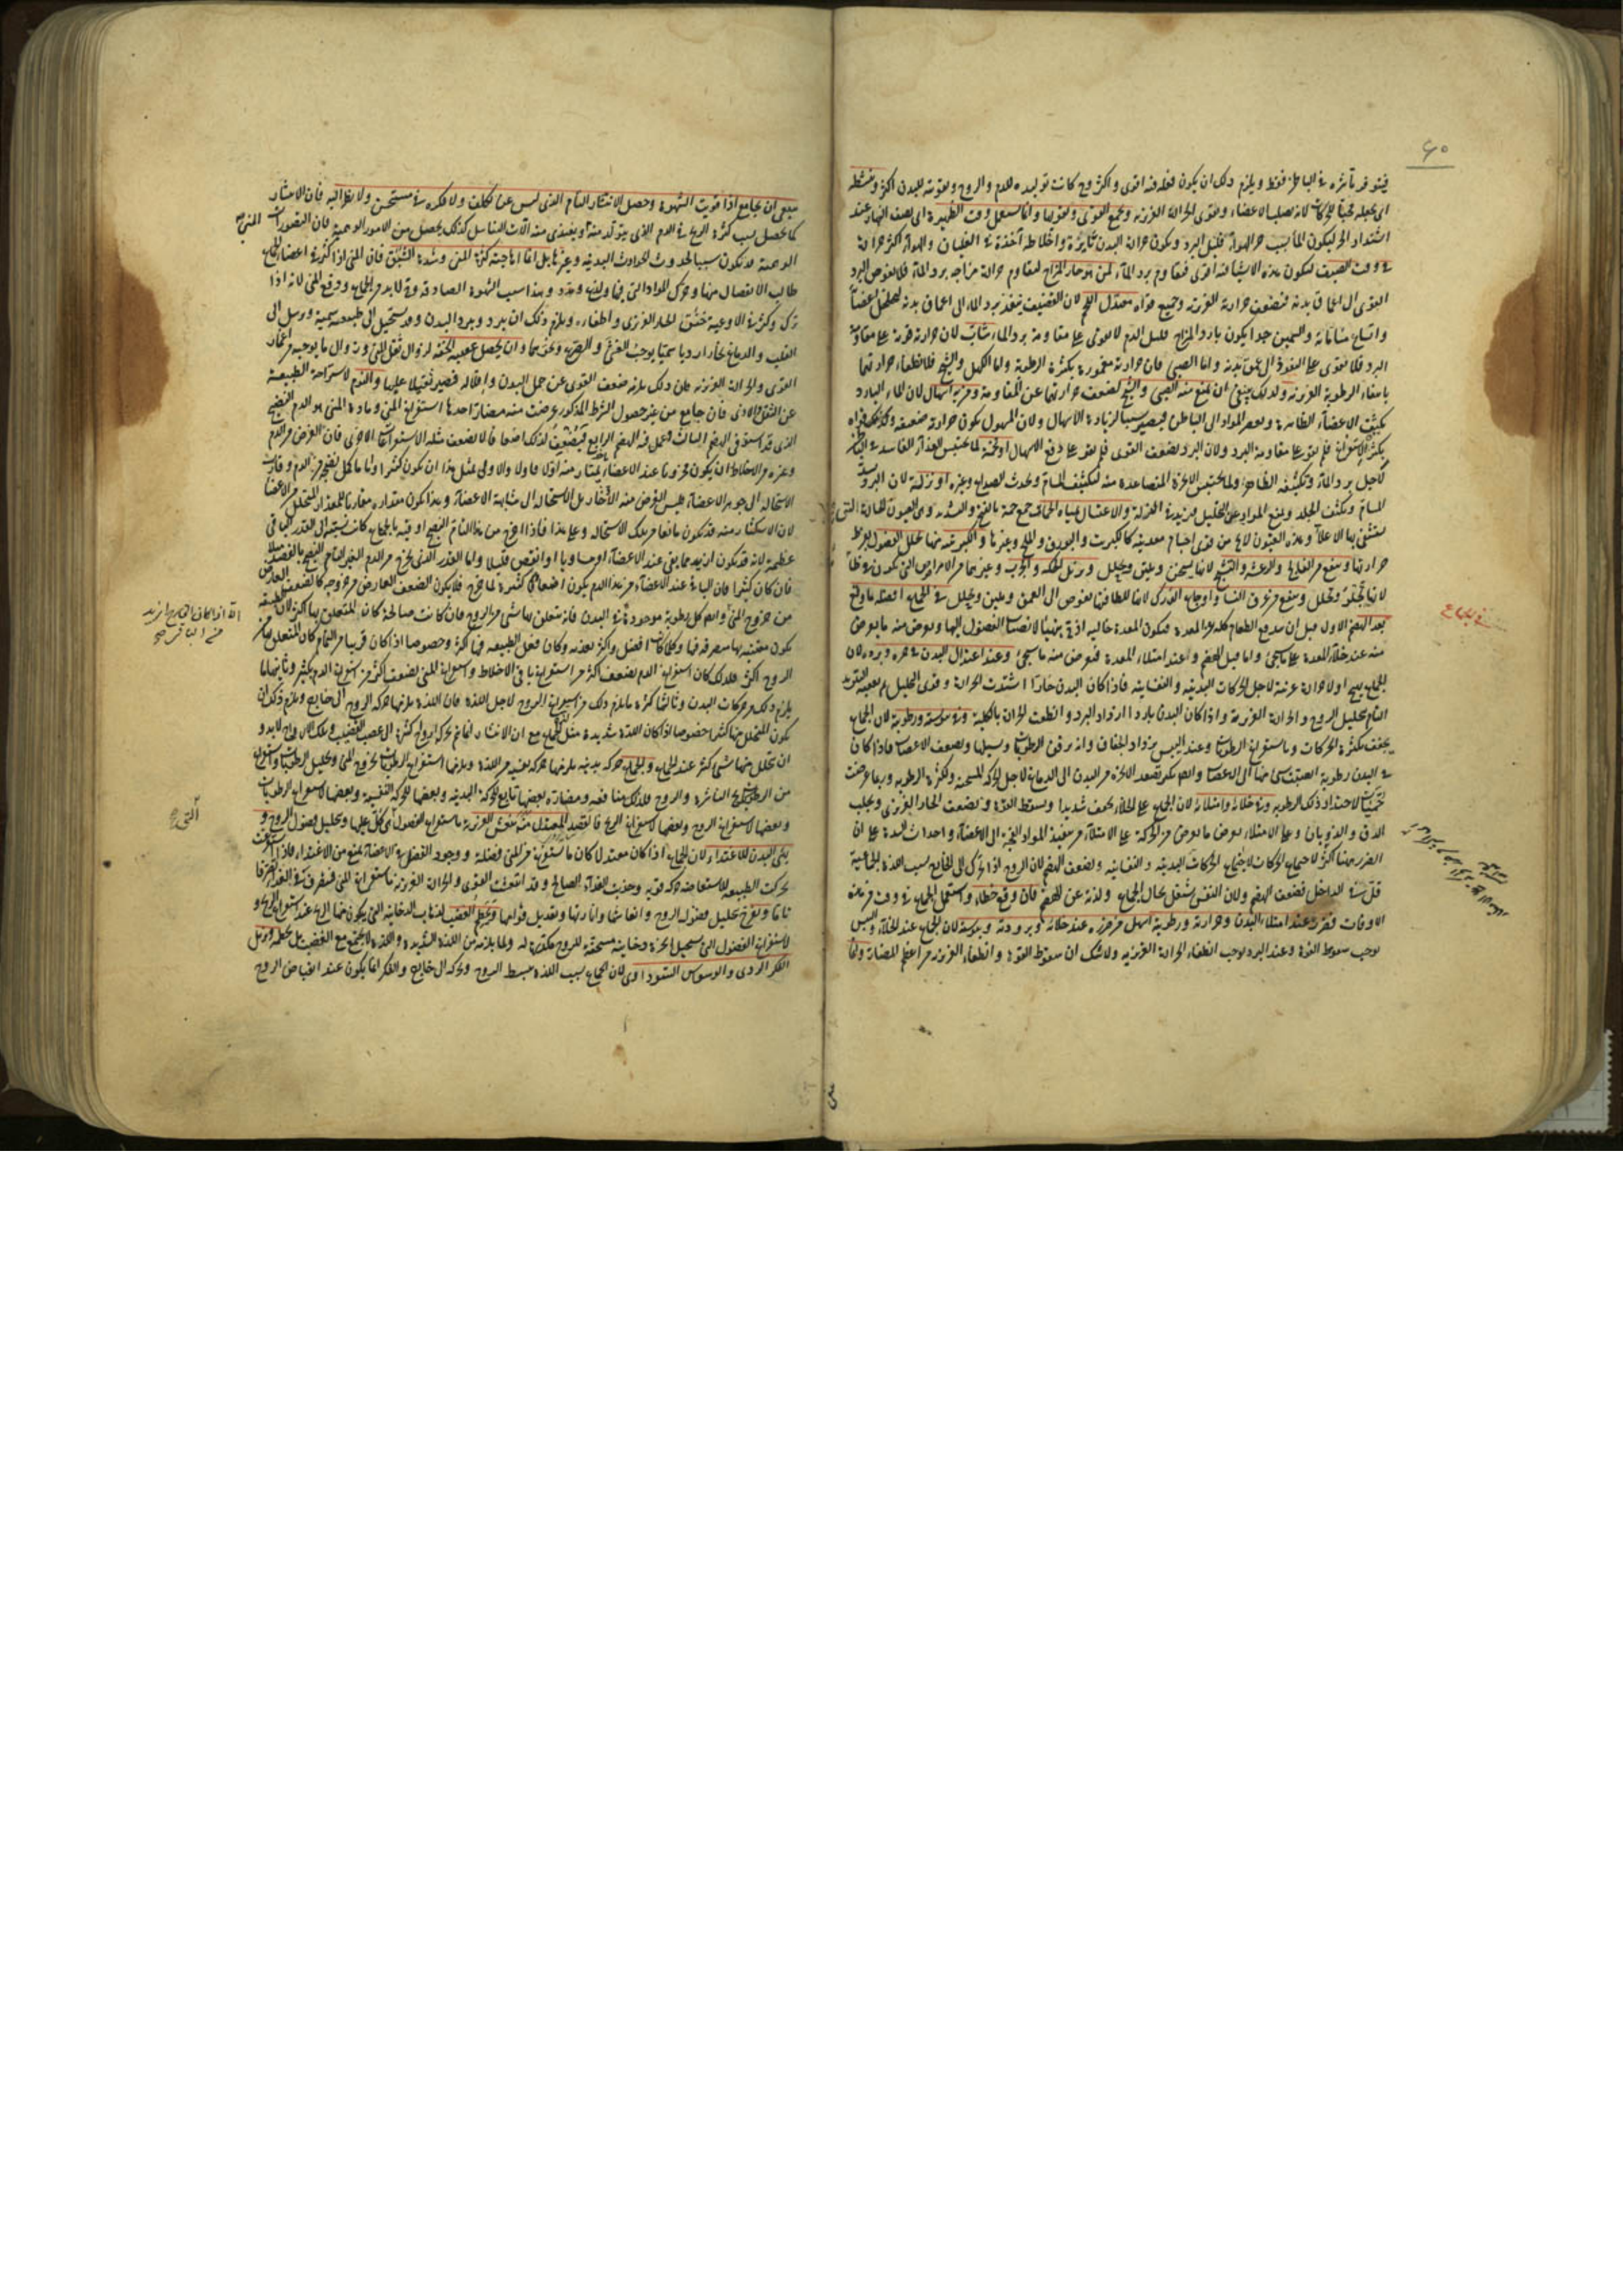 ٤٠
فيتوفر تأثيره في الباطن فقط ويلزم ذلك ان يكون فعله فيه اقوى واكثر وح كانت توليده للدم والروح وتقويته للبدن اكثر وينشطه
اى يجعله محباً للحركات لانه يصلب الاعضاء ويقوى الحرارة الغريزية ويجمع القوى ويقويها وانما يستعمل وقت الظهيرة اى نصف النهار عند
اشتداد الحر ليكون الماء بسبب حر الهواء قليل البرد ويكون حرارة البدن ثايرة واخلاطه آخذة في الغليان والهواء اكثر حرارة
في وقت الصيف ليكون هذه الاشياء فيه اقوى فيقاوم برد الماء لمن هو حار المزاج ليقاوم حرارة مزاجه برد الماء فلا يغوص البرد
القوى الى اعماق بدنه فيضعف حرارته الغريزية وجميع قواه معتدل اللحم لان القضيف ينفذ برد الماء الى اعماق بدنه لتخلخل اعضائه
واتساع مساماته والسمين جدا يكون بارد المزاج قليل الدم لا يقوى على مقاومة برد الماء شاب لان حرارته قوية على مقاومة
البرد فلا يقوى على النفوذ الى عمق بدنه واما الصبى فان حرارته مغمورة بكثرة الرطوبة واما الكهل والشيخ فلانطفاء حرارتهما
بانتفاء الرطوبة الغريزية ولذلك ينبغى ان يمنع منه الصبى والشيخ لضعف حرارتهما عن المقاومة ومن به اسهال لان الماء البارد
يكثف الاعضاء الظاهرة ويعصر المواد الى الباطن فيصير سببا لزيادة الاسهال ولان المسهول يكون حرارته ضعيفة وكذلك قواه
بكثرة الاستفراغ فلم يقو على مقاومة البرد ولان البرد يضعف القوى فلم يقو على دفع الاسهال او تخمة لما يحتبس الغذاء الفاسد في الباطن
لاجل برد الماء وتكثيفه الظاهر ولما يحتبس الابخرة المتصاعدة منه لتكثيف المسام ويحدث الصداع وغيره او نزلة لان البرد يسد
المسام ويكثف الجلد ويمنع المواد عن التحليل فيزيد في النزلة والاغتسال بمياه الحمات جمع حمة بالفتح والتشديد وهى العيون الحارة التى
يستشفى بها الاعلاء وهذه العيون لا يخ من قوى اجسام معدنية كالكبريت والبورق والملح وغيرها والكبريتية منها تحلل الفضول لفرط
حرارتها وينفع من الفالج والرعشة والتشنج لانها يسخن ويلين ويحلل ويزيل الحكة والجرب وغيرهما من الامراض التى يكون
لانها تجلو وتحلل وينفع من عرق النسا واوجاع الورك لانها للطافتها يغوص الى العمق ويلين ويحلل في الجماع افضله ما وقع
بعد الهضم الاول قبل ان يندفع الطعام كله من المعدة فيكون المعدة خالية اذ ح يتهيأ لانصباب الفضول اليها ويعرض منه ما يعرض
منه عند خلاء المعدة على ما سيجئ واما قبل الهضم وعند امتلاء المعدة فيعرض منه ما سيجئ وعند اعتدال البدن في حره وبرده لان
الجماع يهيج اولا حرارة غريبة لاجل الحركات البدنية والنفسانية فاذا كان البدن حارا اشتدت الحرارة وقوى التحليل ثم يعقبه التبريد
التام بتحليل الروح والحرارة الغريزية واذا كان البدن باردا ازداد البرد وانطفت الحرارة بالكلية وفى يبوسته ورطوبته لان الجماع
يجفف بكثرة الحركات وباستفراغ الرطوبات وعند اليبس يزداد الجفاف وانه يرقق الرطوبات ويسيلها ويضعف الاعصاب فاذا كان
في البدن رطوبة انصبت منها الى الاعصاب وايضا يكثر تصعد الابخرة من البدن الى الدماغ لاجل الحركة المسخنة ولكثرة الرطوبة وربما عرضت
حميات لاحتداد تلك الرطوبة وفى خلائه وامتلائه لان الجماع على الخلاء يجفف شديدا ويسقط القوة ويضعف الحار الغريزى ويجلب
الدق والذوبان وعلى الامتلاء يعرض ما يعرض من الحركة على الامتلاء من تنفيذ المواد الفجة الى الاعضاء واحداث السدة على ان
الضرر ههنا اكثر لاجتماع الحركات لاجتماع الحركات البدنية والنفسانية ويضعف الهضم لان الروح اذا تحرك الى الخارج بسبب اللذة الجماعية
قل في الداخل فضعف الهضم ولان النفس يشتغل بحال الجماع ولذته عن الهضم فان وقع خطاء واستعمل الجماع في وقت من هذه
الاوقات فضرره عند امتلاء البدن وحرارته ورطوبته اسهل من ضرره عند خلائه وبرودته ويبوسته لان الجماع عند الخلاء واليبس
يوجب سقوط القوة وعند البرد يوجب انطفاء الحرارة الغريزية ولا شك ان سقوط القوة وانطفاء الغريزية من اعظم المضارة وانما
في الجماع
ينبغى ان يجامع اذا قويت الشهوة وحصل الانتشار التام الذى ليس عن تكلف ولا فكرة في مستحسن ولا نظر اليه فان الانتشار
كما يحصل بسبب كثرة الريح في الدم الذى يتولد منه ويغتذى منه آلات التناسل كذلك يحصل من الامور الوهمية فان التصورات
الوهمية قد يكون سببا لحدوث الحوادث البدنية وغيرها بل انما اهاجته كثرة المنى وشدة الشبق فان المنى اذا كثر في اعضاء الجماع
طالب الانفصال منها وحرك المواد التى فيها ولذع ومدد وهذا سبب الشهوة الصادقة وح لا بد من الجماع ودفع المنى لانه اذا
ترك وكثر في الاوعية خنق الحار الغريزى واطفاءه ويلزم ذلك ان يبرد ويبرد البدن وقد يستحيل الى طبيعة سمية ويرسل الى
القلب والدماغ بخارا رديا سميا يوجب الغشى والصرع ونحوهما وان يحصل عقيبه الخفة لزوال ثقل المنى وزوال ما يوجبه من انغمار
القوى والحرارة الغريزية فان ذلك يلزمه ضعف القوى عن حمل البدن واقلاله فيصير ثقيلا عليها والنوم لاستراحة الطبيعة
عن الثقل والاذى فان جامع من غير حصول الشرط المذكور عرضت منه مضار احدها استفراغ المنى ومادة المنى هو الدم النضيج
الذى قد استوفى الهضم الثالث وعمل فيه الهضم الرابع فيضعف لذلك اضعافا لا يضعف مثله الاستفراغات الاخرى فان الغرض من الدم
وغيره من الاخلاط ان يكون مخزونا عند الاعضاء ليمتار منه اولا فاولا والاولى بمثل هذا ان يكون كثيرا واما ما كمل نضجه من الدم وقارب
الاستحالة الى جوهر الاعضاء فليس الغرض منه الادخار بل الاستحالة الى مشابهة الاعضاء وهذا يكون مقداره مقاربا للمقدار المتحلل من الاعضاء
لان الاستكثار منه قد يكون مانعا من تلك الاستحالة وعلى هذا فاذا اخرج من هذا التام النضج او قيه بالجماع كانت نسبته الى القدر الباقى
عظيمة لانه قد يكون ازيد مما بقى عند الاعضاء او مساويا او انقص قليلا واما القدر الذى يخرج من الدم الغير التام النضج بالفصد مثلا
فان كان كثيرا فان الباقى عند الاعضاء من هذا الدم يكون اضعافا كثيرة لما يخرج فلا يكون الضعف العارض من خروجه كالضعف العارض
من خروج المنى وايضا كل رطوبة موجودة في البدن فانه يتعلق بها شئ من الروح فان كانت صالحة كان المتعلق بها اكثر لان الطبيعة
يكون معتنية بها متصرفة فيها وكلما كانت افضل واكثر تغذية وكان فعل الطبيعة فيها اكثر وخصوصا اذا كان قريبا من التمام كان المتعلق بها من
الروح اكثر فلذلك كان استفراغ الدم يضعف اكثر من استفراغ باقى الاخلاط واستفراغ المنى يضعف اكثر من استفراغ الدم بكثير وثانيها ما
يلزم ذلك من حركات البدن وثالثها كثرة ما يلزم ذلك من استفراغ الروح لاجل اللذة فان اللذة يلزمها حركة الروح الى خارج ويلزم ذلك ان
يكون المتحلل منها كثيرا خصوصا اذا كان اللذة شديدة مثل الجماع مع ان الانتشار انما يتم بحركة ارواح كثيرة الى عصب القضيب وتلك الارواح لا بد و
ان يتحلل منها شئ اكثر عند الجماع والجماع حركة بدنية يلزمها حركة نفسية من اللذة ويلزمها استفراغ الرطوبات بخروج المنى وتحليل الرطوبات واستفراغ
من الريح الناشرة والروح فلذلك منافعه ومضاره بعضها تابع للحركة البدنية وبعضها للحركة النفسية وبعضها لاستفراغ الرطوبات
وبعضها لاستفراغ الروح وبعضها لاستفراغ الريح فالقصد المعتدل منه ينعش الغريزية باستفراغ الفضول التى تكل عليها وتحليل فضول الروح و
يهئ البدن للاغتذاء لان الجماع اذا كان معتدلا كان ما يستفرغ من المنى فضلة ووجود الفضل في الاعضاء يمنع من الاغتذاء فاذا استفرغت
تحركت الطبيعة للاستعاضة حركة قوية وجذبت الغذاء الصالح وقد انتعشت القوى والحرارة الغريزية باستفراغ المنى فيتصرف في الغذاء تصرفا
تاما ويفرح بتحليل فضول الروح وانعاشها وانارتها وتعديل قوامها ويحطم الغضب لذهاب الدخانية التى يكون منها الريح عند استفراغ الريح و
لاستفراغ الفضول التى يستحيل ابخرة دخانية مسخنة للروح مكدرة له ولما يلزمه من اللذة الشديدة واللذة لا يجتمع مع الغضب بل يحطمه ويزيل
الفكر الردى والوسواس السوداوى لان الجماع بسبب اللذة يبسط الروح ويحركه الى خارج والفكر انما يكون عند انقباض الروح